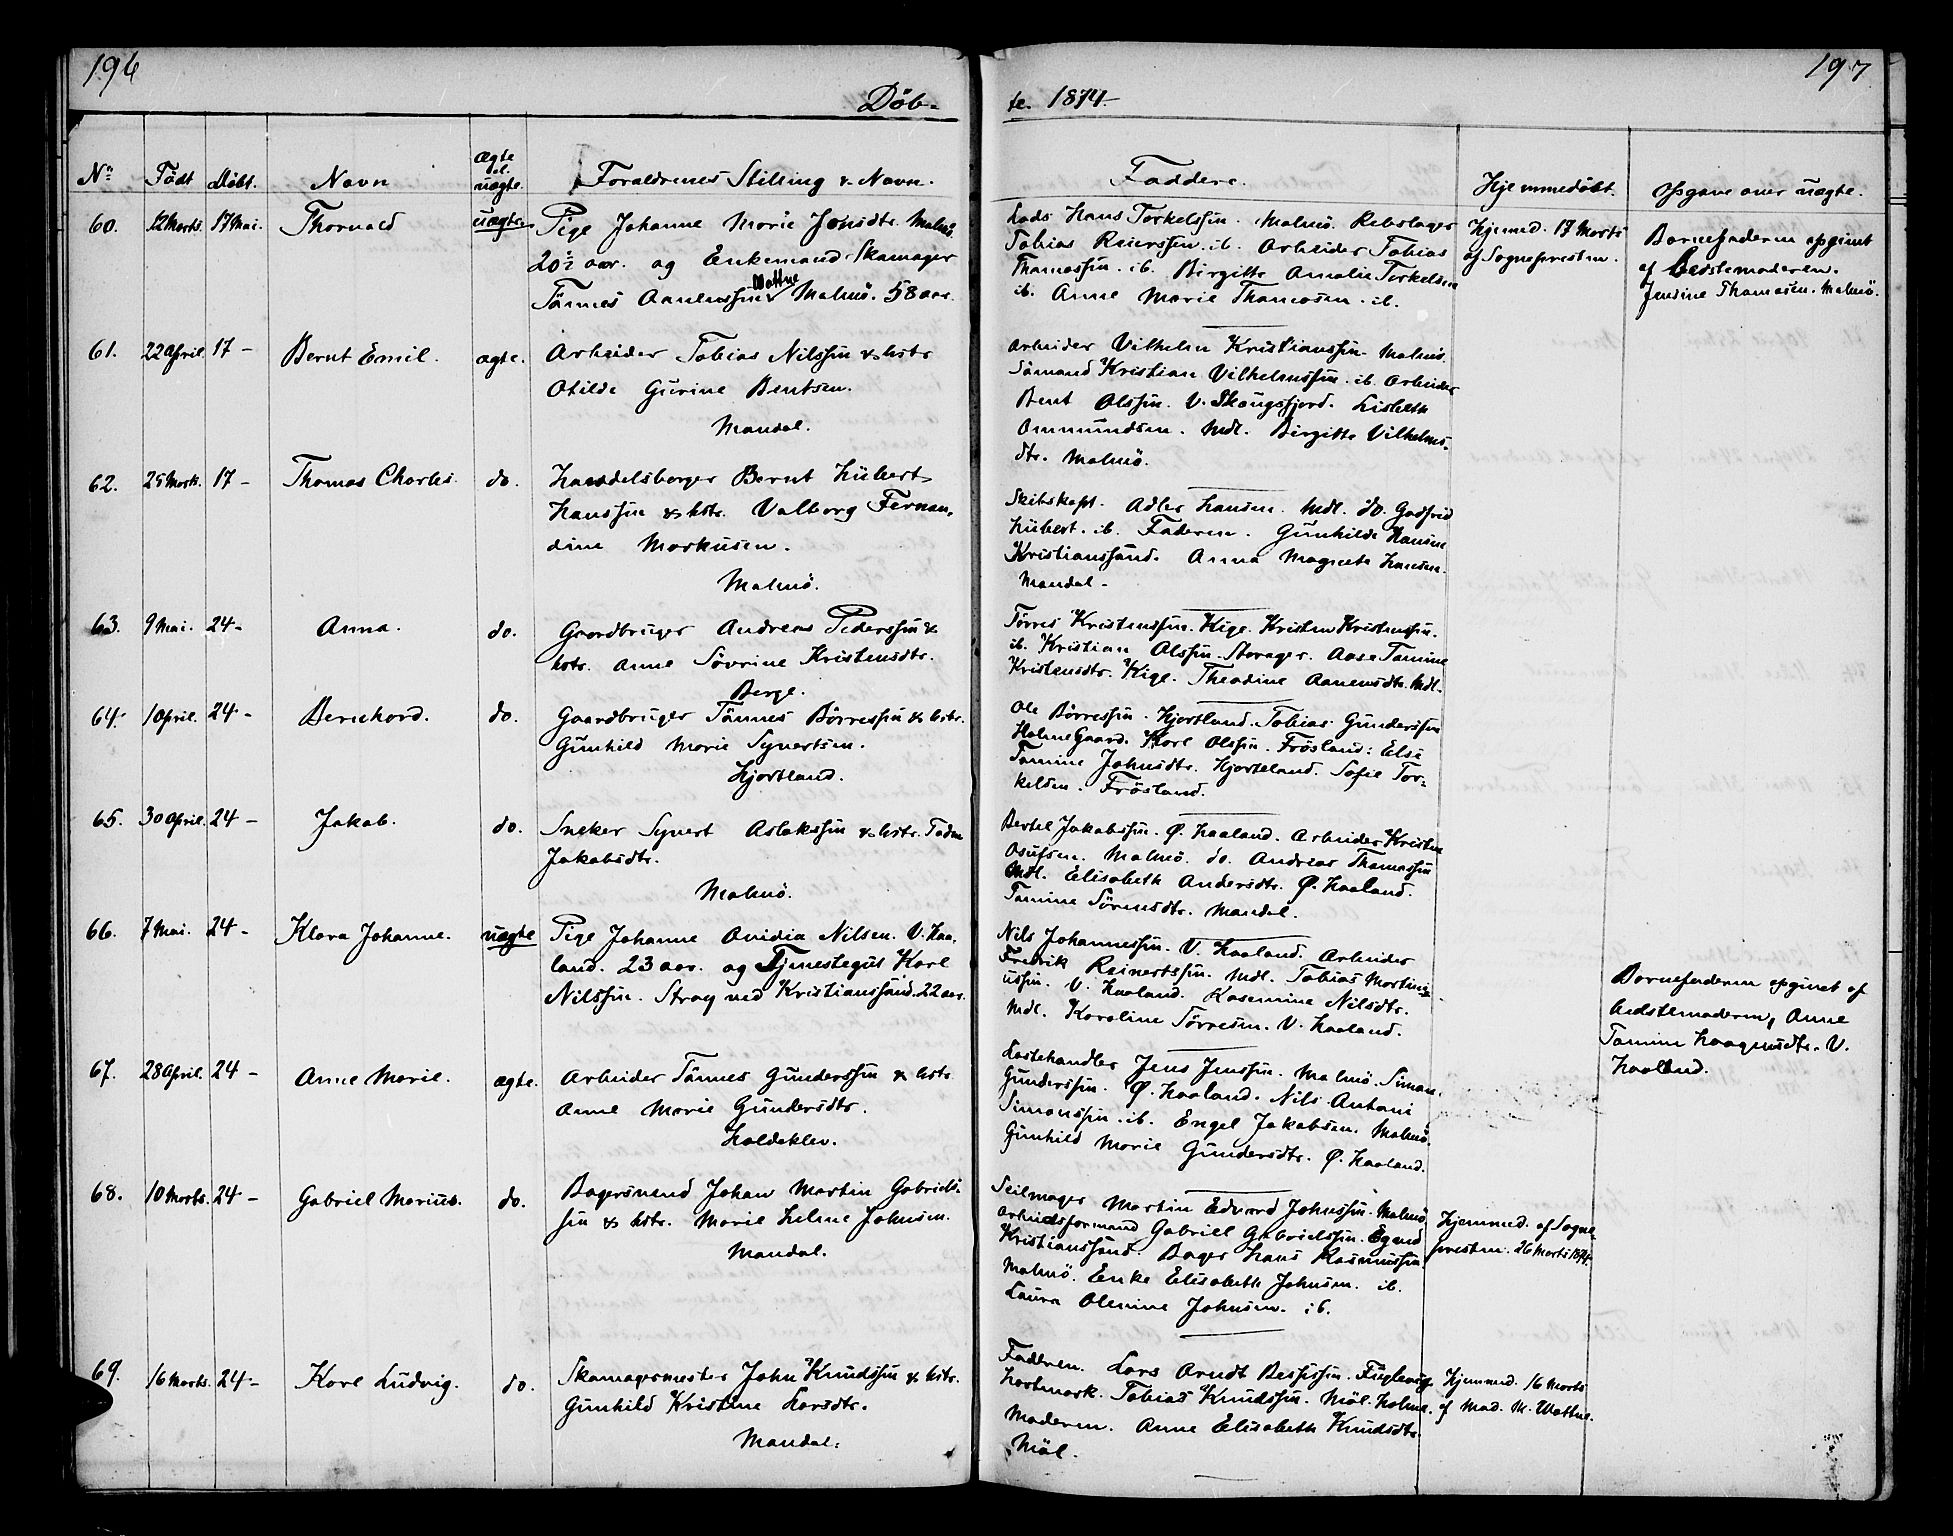 196
197
Döb-
te. 1874
No Födt Döbt. Navn ægte el. uægte. Foraldrenes Stilling & Navn.
Faddere. Hjemmedöbt. Opgave over uægte.
60. 12 Marts. 17 Mai. Thorvald uægte. Pige Johanne Marie Jonsdtr. Malmö.
20½ aar. og Enkemand Skomager
Tönnes Aanenssen Wattne Malmö. 58 aar.
Lods Hans Torkelssen. Malmö. Rebslager
Tobias Reierssen. ib. Arbeider Tobias
Thomassen. ib. Birgitte Amalie Torkelsen
ib. Anne Marie Thomasen. ib.
Hjemmed. 17 Marts
af Sognepresten.
Barnefaderen opgivet
af bedstemoderen.
Jensine Thomasen. Malmö.
61. 22 April. 17 - Bernt Emil. ægte. Arbeider Tobias Nilssen & hstr
Otilde Gurine Bentsen.
Mandal.
Arbeider Vilhelm Kristianssen. Malmö.
Sömand Kristian Vilhelmssen. ib. Arbeider
Bent Olssen. V. Skougsfjord. Lisbeth
Ommundsen. Mdl. Birgitte Vilhelms-
dtr. Malmö.
62. 25 Marts. 17 - Thomas Charles. do. Handelsborger Bernt Hübert
Hanssen & hstr. Valborg Fernan-
dine Markusen.
Malmö.
Skibskapt. Adler Hansen. Mdl. do. Godfred
Hübert. ib. Faderen. Gunhilde Hansen
Kristianssand. Anna Magrete Hansen.
Mandal-
63. 9 Mai. 24- Anna. do. Gaardbruger Andreas Pederssen &
hstr. Anne Sövrine Kristensdtr.
Berge.
Törres Kristenssen. Kige. Kristen Kristenssen.
ib. Kristian Olssen. Storager. Aase Tomine
Kristensdtr. Kige. Theodine Aanensdtr. Mdl.
64. 1 April. 24 - Bernhard. do. Gaardbruger Tönnes Börressen & hstr.
Gunhild Marie Syvertsen.
Hjortland.
Ole Börressen. Hjortland. Tobias Gunderssen
Holme Gaard. Karl Olssen. Frösland: Else
Tomine Johnsdtr. Hjorteland. Sofie Tor-
kelsen. Frösland.
65. 30 April. 24 - Jakob. do. Sneker Syvert Aslakssen & hstr. Taden
Jakobsdtr.
Malmö.
Bertel Jakobssen. Ø. Haaland. Arbeider Kristen
Osufsen. Malmö. do. Andreas Thomassen
Mdl. Elisabeth Andersdtr. Ø. Haaland.
Tomine Sörensdtr. Mandal.
66. 7 Mai. 24 - Klara Johanne. uægte Pige Johanne Ovidia Nilsen. V. Haa-
land. 23 aar. og Tjenestegut Karl
Nilssen. Stray ved Kristianssand. 22 aar.
Nils Johannessen. V. Haaland. Arbeider
Fredrik Reinertssen. Mdl. Tobias Martini-
ussen. V. Haaland. Rasemine Nilsdtr.
Mdl. Karoline Törresen. V. Haaland.
Barnefaderen opgivet af
bedstemoderen, Anne
Tomine Haagensdtr. V.
Haaland.
67. 28 April. 24 - Anne Marie. ægte. Arbeider Tönnes Gunderssen & hstr.
Anne Marie Gundersdtr.
Holdeklev.
Lastehandler Jens Jenssen. Malmö. Simon
Gunderssen. Ø. Haaland. Nils Antoni
Simonssen. ib. Engel Jakobsen. Malmö.
Gunhild Marie Gundersdtr. Ø. Haaland.
68. 10 Marts. 24 - Gabriel Marius. do. Bagersvend Johan Martin Gabriels-
sen & hstr. Marie Helene Johnsen.
Mandal.
Seilmager Martin Edvard Johnssen. Malmö
Arbeidsformand Gabriel Gabrielssen. Egend
Kristianssand. Bager Hans Rasmussen
Malmö. Enke Elisabeth Johnsen. ib.
Laura Olemine Johnsen. ib.
Hjemmed. af Sogne-
presten. 26 Marts 1874.
69. 16 Marts. 24 - Karl Ludvig. do. Skomagermester John Knudssen & hstr.
Gunhild Kristine Larsdtr.
Mandal.
Faderen. Lars Arndt Bessessen. Fuglevig
Hartmark. Tobias Knudssen. Möl. Holme.
Moderen. Anne Elisabeth Knudsdtr.
Möl.
Hjemmed. 16 Marts
af Mad. M. Wattne.